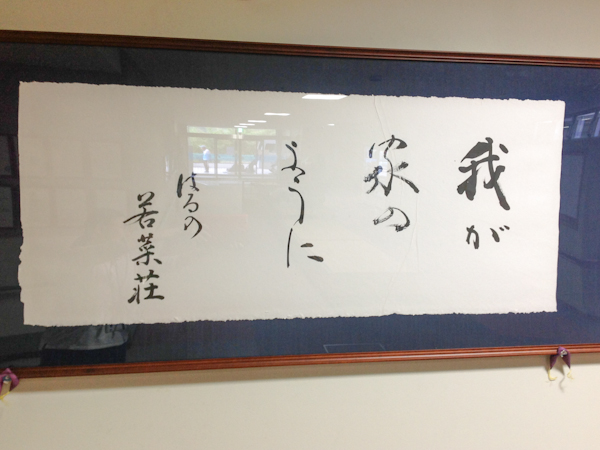 我が
家の
ように
はるの
若菜荘